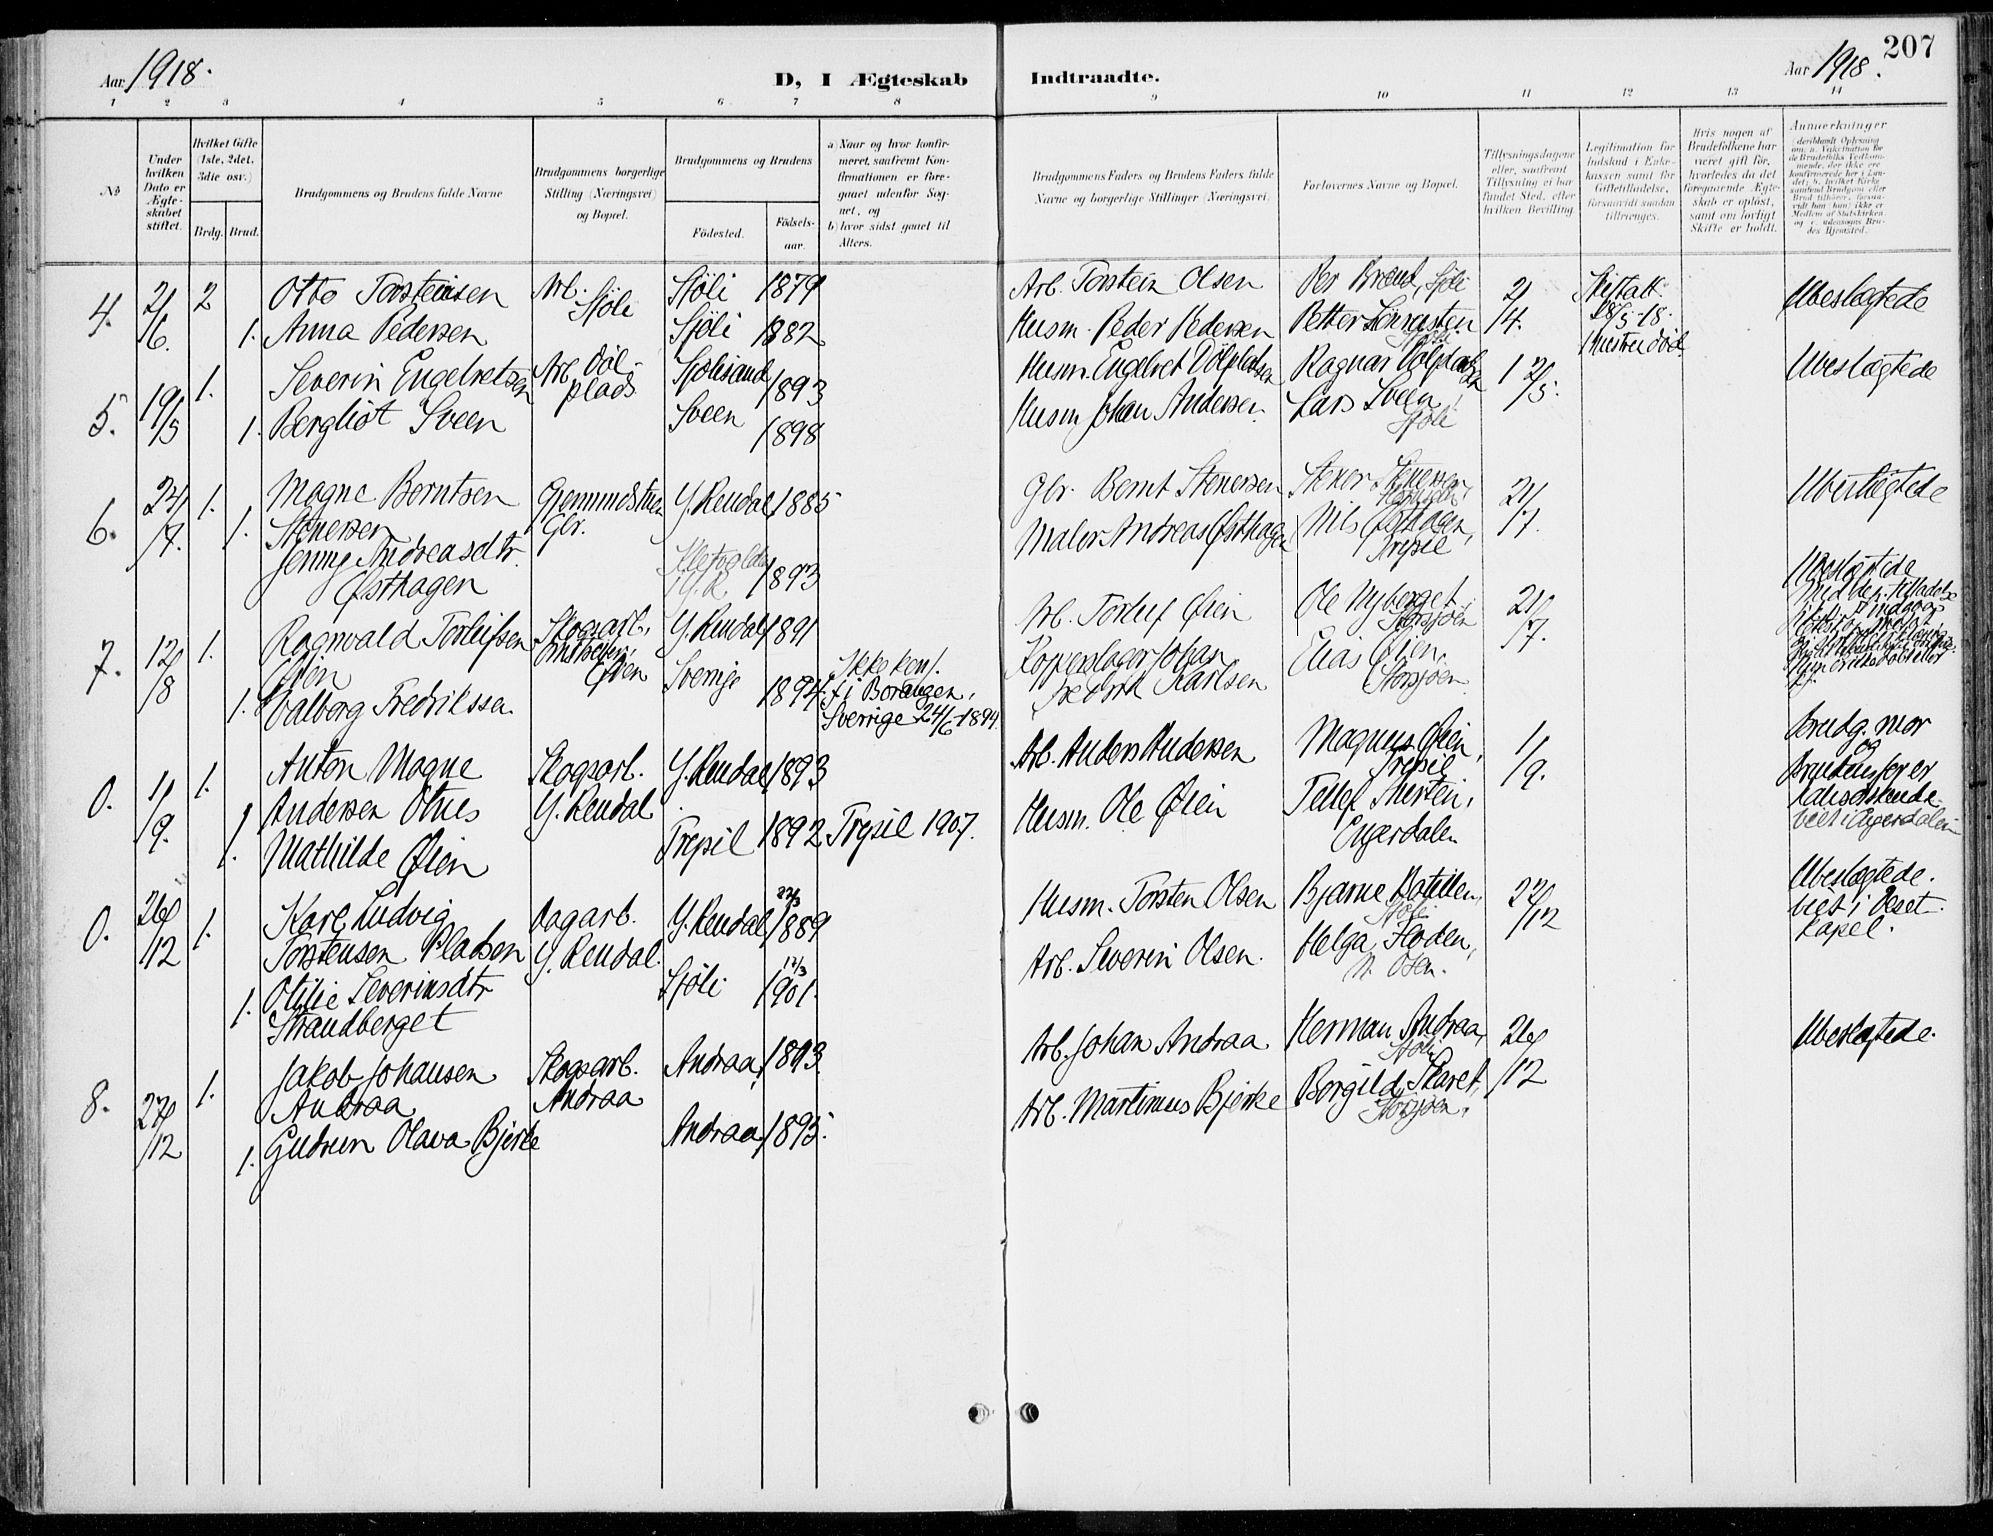 207
Aar 1918.
D, I Ægteskab Indtraadte.
Aar 1918.
1 2 3 4 5 6 7 8 9 10 11 12 13 14
No
Under hvilken Dato er Ægteskabet stiftet.
Hvilket Gifte (1ste, 2det, 3die osv.)
Brdg. Brud.
Brudgommens og Brudens fulde Navne
Brudgommens borgerlige Stilling (Næringsvei) og Bopæl.
Brudgommens og Brudens
Fødested.
Fødselsaar.
a) Naar og hvor konfirmeret, saafremt Konfirmationen er foregaaet udenfor Sognet, og
b) hvor sidst gaaet til Alters.
Brudgommens Faders og Brudens Faders fulde Navne og borgerlige Stillinger (Næringsvei).
Forlovernes Navne og Bopæl.
Tillysningsdagene eller, saafremt Tillysning ei har fundet Sted, efter hvilken Bevilling
Legitimation for Indskud i Enkekassen samt for Giftetilladelse, forsaavidt saadan tiltrænges.
Hvis nogen af Brudefolkene har været gift før, hvorledes da det foregaaende Ægteskab er opløst, samt om lovligt Skifte er holdt.
Anmerkninger
4. 2/6. 2 Otto Torsteinsen Arb. Sjøli Sjøli 1879 Arb. Torstein Olsen Per Brænd, Sjøli 2/4. Skifteatt. 28/5-18. Ubeslægtede
1. Anna Pedersen Sjøli 1882 Husm. Peder Pedersen Petter
5. 19/5 1. Severin Engelretsen Arb. Døl-plads Sjølisand 1893 Husm. Engelret Dølpladsen Ragnar 12/5. Ubeslægtede
1. Bergliot Sveen Sveen 1898 Husm. Johan Andersen. Lars Sveen, Sjøli
6. 24/7. 1. Magne Berntsen Stenersen Gjermundstuen Gbr. Y. Rendal 1885 Gbr. Bernt Stenersen Stener Stenersen, 21/7. Ubeslægtede
1. Jenny Andreasdtr. Østhagen Y.R. 1893 Maler Andreas Østhagen Nils Østhagen, Trysil
7. 12/8 1. Ragnvald Torleifsen Øien Skogarb., Øien Y. Rendal 1891 Arb. Torleif Øien Ole Nyberget, Storsjøen 21/7. Ubeslægtede
1. Valborg Fredrikssen. Sverrige 1894. Ikke konf. f. i Borängen, Sverrige 24/6-1894. Kopperslager Johan Fredrik Karlsen Elias Øien, Storsjøen
0. 1/9. 1. Anton Magne Andersen Otnes Skogsarb. Y. Rendal Y. Rendal 1893 Arb. Anders Andersen Magnus Øien, Trysil 1/9. Brudg. mor og
1. Mathilde Øien Trysil 1892 Trysil 1907. Husm. Ole Øien Tellef Engerdalen
0. 26/12 1. Karl Ludvig Torstensen Pladsen Dagarb. Y. Rendal. Y. Rendal 22/3 1889 Husm. Torsten Olsen Bjarne Sjøli 22/12 Ubeslægtede. viet i Oset kapel.
1. Otilie Severinsdtr Strandberget Sjøli 12/3 1901. Arb. Severin Olsen. Helga Floden, N. Osen.
8. 27/12 1. Jakob Johansen Andraa Skogsarb. Andraa Andraa, 1893. Arb. Johan Andraa. Herman Andraa, Sjøli 26/12 Ubeslægtede.
1. Gudrun Olava Bjerke Andraa, 1895. Arb. Martinus Bjerke Borgild Skaret, Storsjøen.